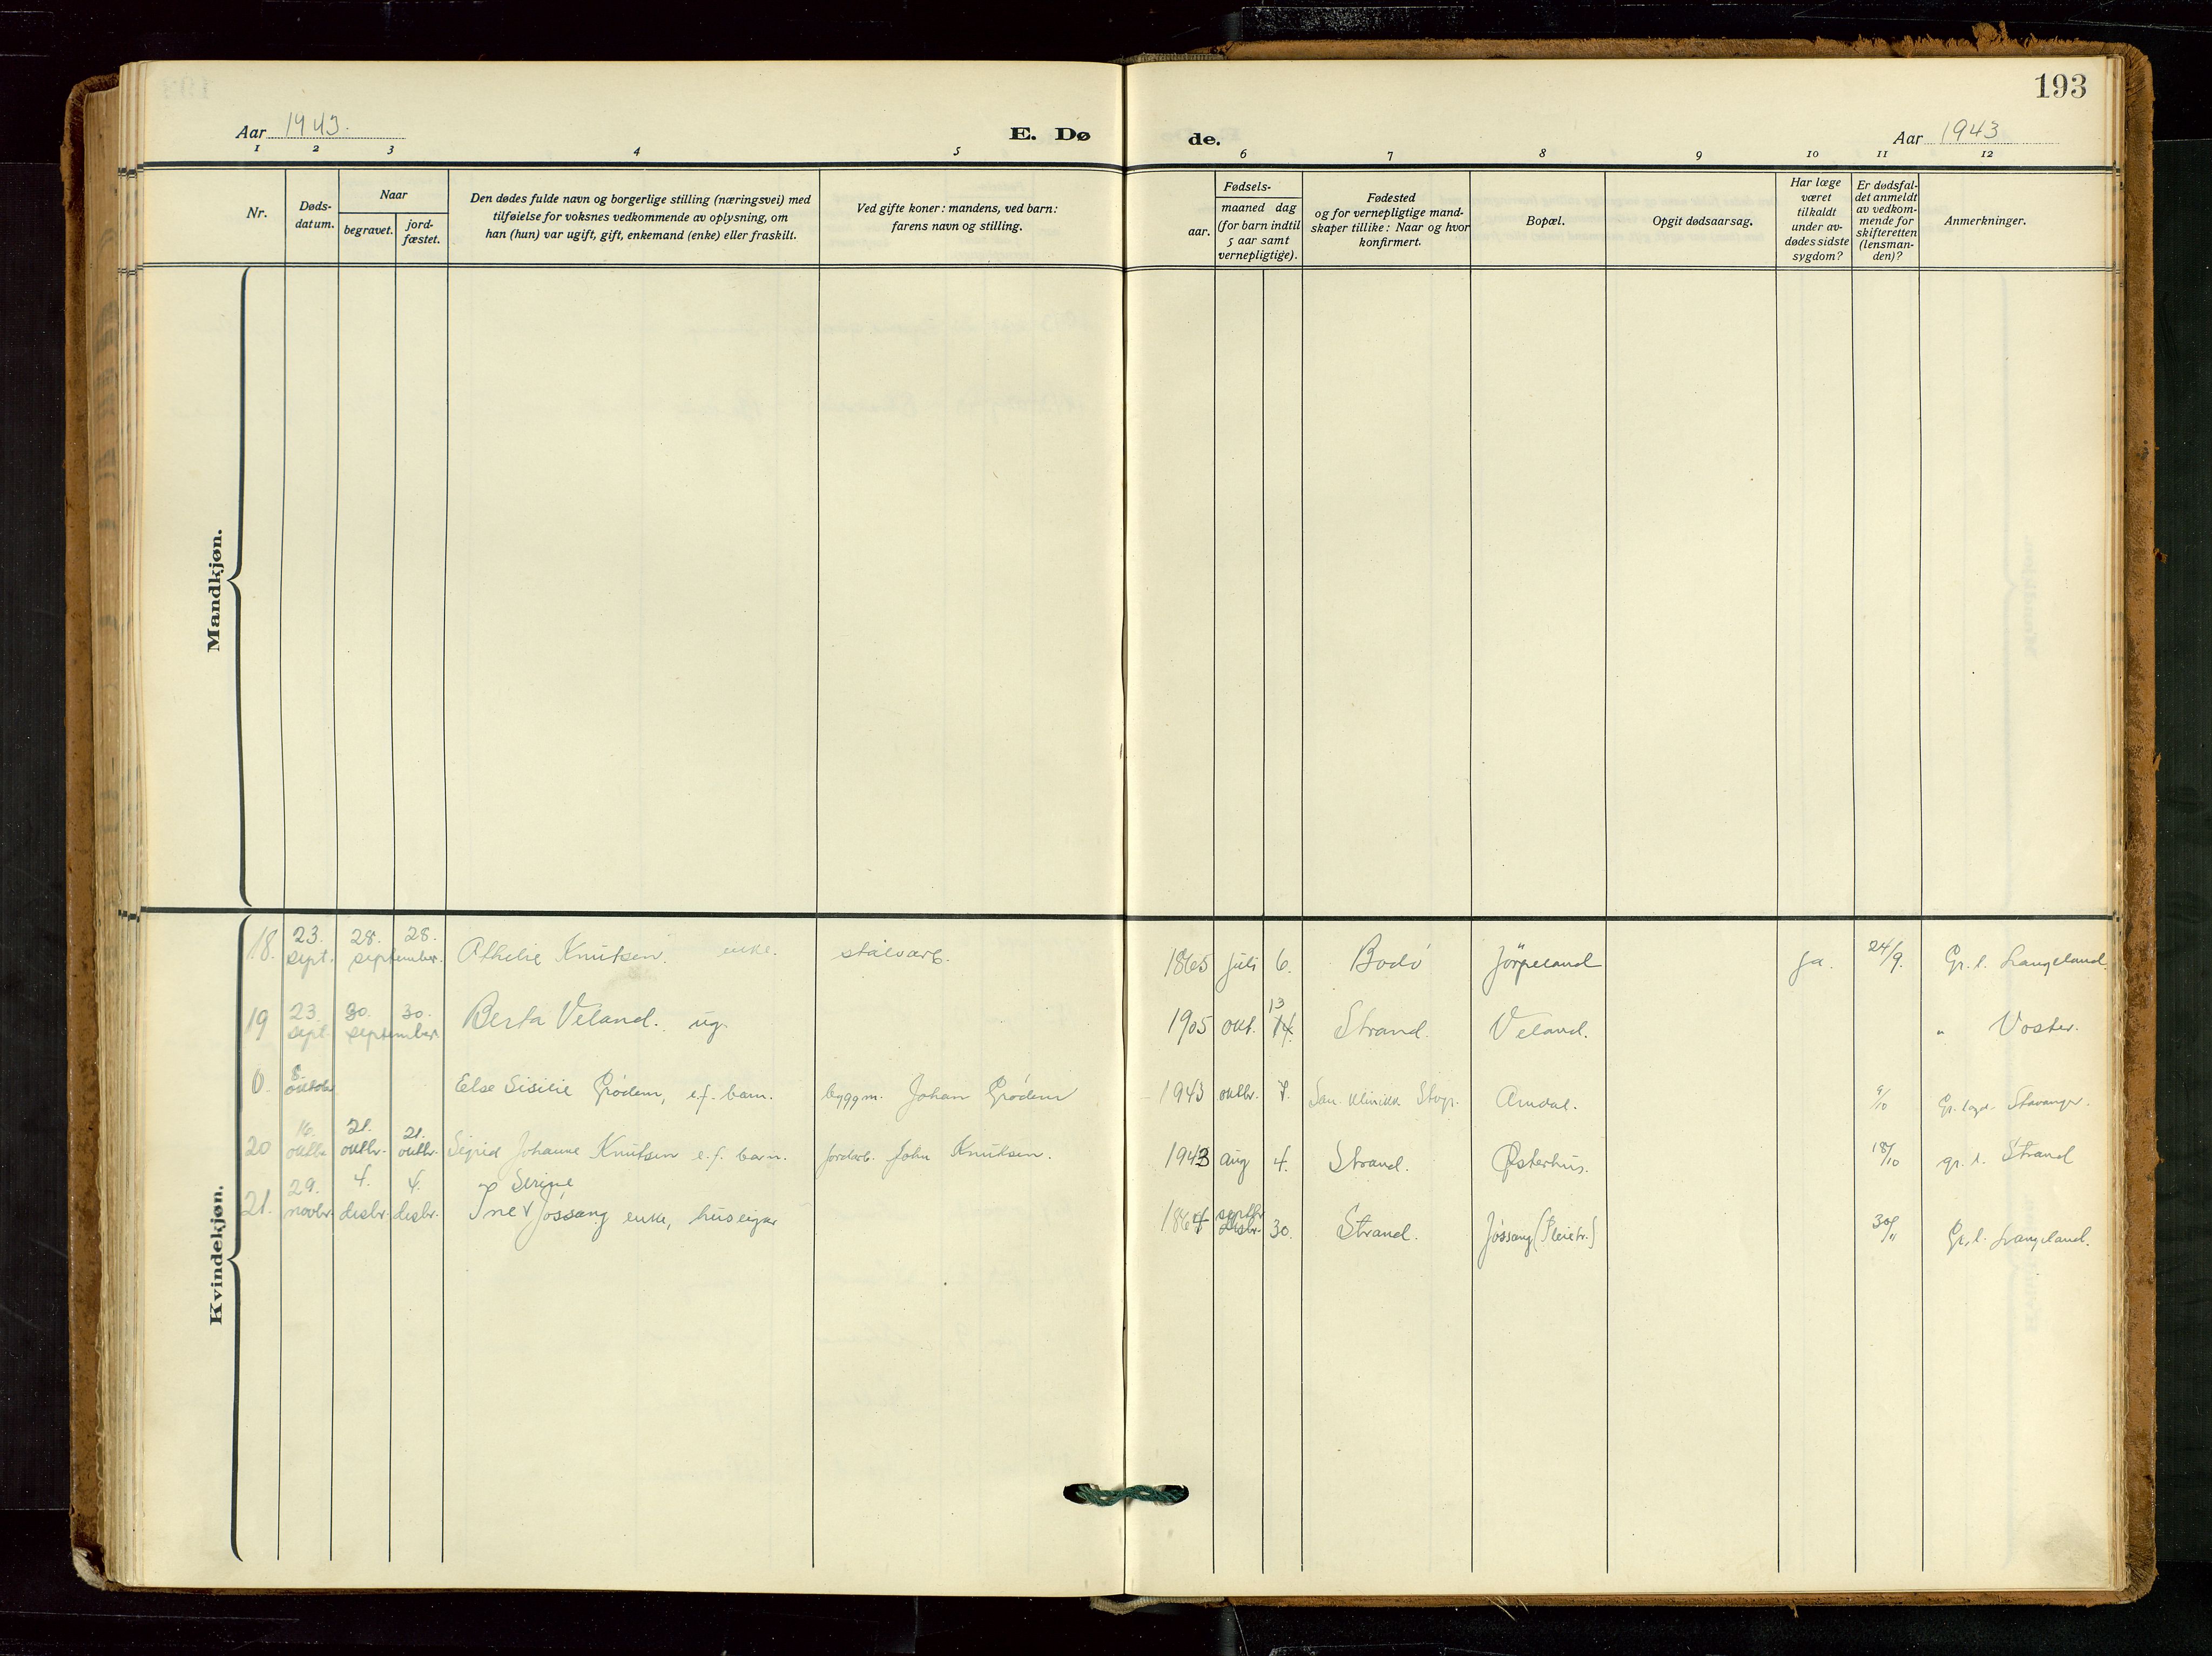 193
Aar 1943.
E. Dø
de.
Aar 1943
1 2 3 4 5 6 7 8 9 10 11 12
Nr.
Døds-
datum.
Naar
begravet.
jord-
fæstet.
Den dødes fulde navn og borgerlige stilling (næringsvei) med
tilføielse for voksnes vedkommende av oplysning, om
han (hun) var ugift, gift, enkemand (enke) eller fraskilt.
Ved gifte koner: mandens, ved barn:
farens navn og stilling.
Fødsels-
aar.
maaned dag
(for barn indtil
5 aar samt
vernepligtige).
Fødested
og for vernepligtige mand-
skaper tillike: Naar og hvor
konfirmert.
Bopæl.
Opgit dødsaarsag.
Har læge
været
tilkaldt
under av-
dødes sidste
sygdom?
Er dødsfal-
det anmeldt
av vedkom-
mende for
skifteretten
(lensman-
den)?
Anmerkninger.
Mandkjøn.
Kvindekjøn.
18. 23. sept. 28. 28. september. Athelie Knutsen. enke. stålarb. 1865 juli 6. Bodö Jörpeland ja. 24/9. Gr. l. Langeland.
19 23. sept. 30. 30. september. Berta Veland. ug. 1905 okt. 13 14. Strand. Veland. " Voster.
0. 8. oktobr Else Sisilie Grödem, e.f. barn. byggm. Johan Grödem 1943 oktbr. 7. San. klinikk Stvgr. Amdal. 9/10 Gr. lagd. Stavanger.
20 16. oktbr. 21. oktbr. 21. oktbr. Sigrid Johanne Knutsen e.f. barn. jordarb. John Knutsen. 1943 aug 4. Strand. Østerhus. 18/10 gr. l. Strand
21. 29. novbr. 4. desbr. 4. desbr. Serine
Ine Jössang enke, huseigar 1864 septbr desbr. 30. Strand. Jössang (Pleietr.) 30/11 Gr. l. Langeland.